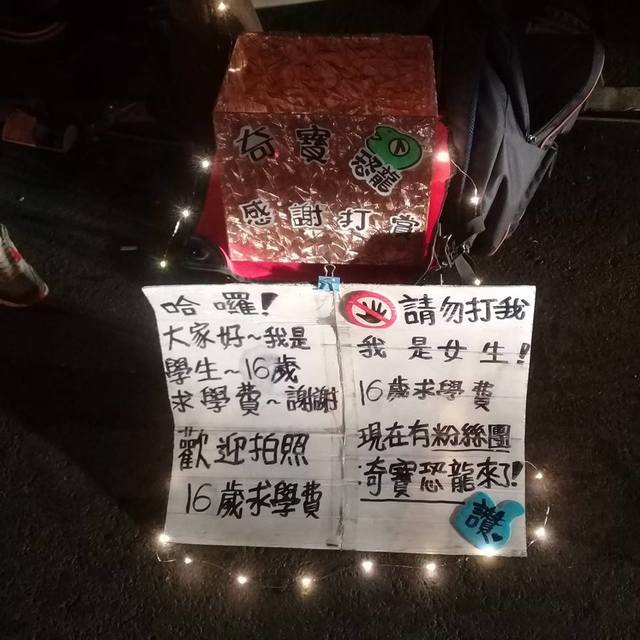 奇寶
恐龍
感謝打賞
哈囉!
大家好~我是
學生~16歲
求學費~謝謝
歡迎拍照
16歲求學費
請勿打我
我是女生!
16歲求學費
現在有粉絲團
奇寶恐龍來了!
讚